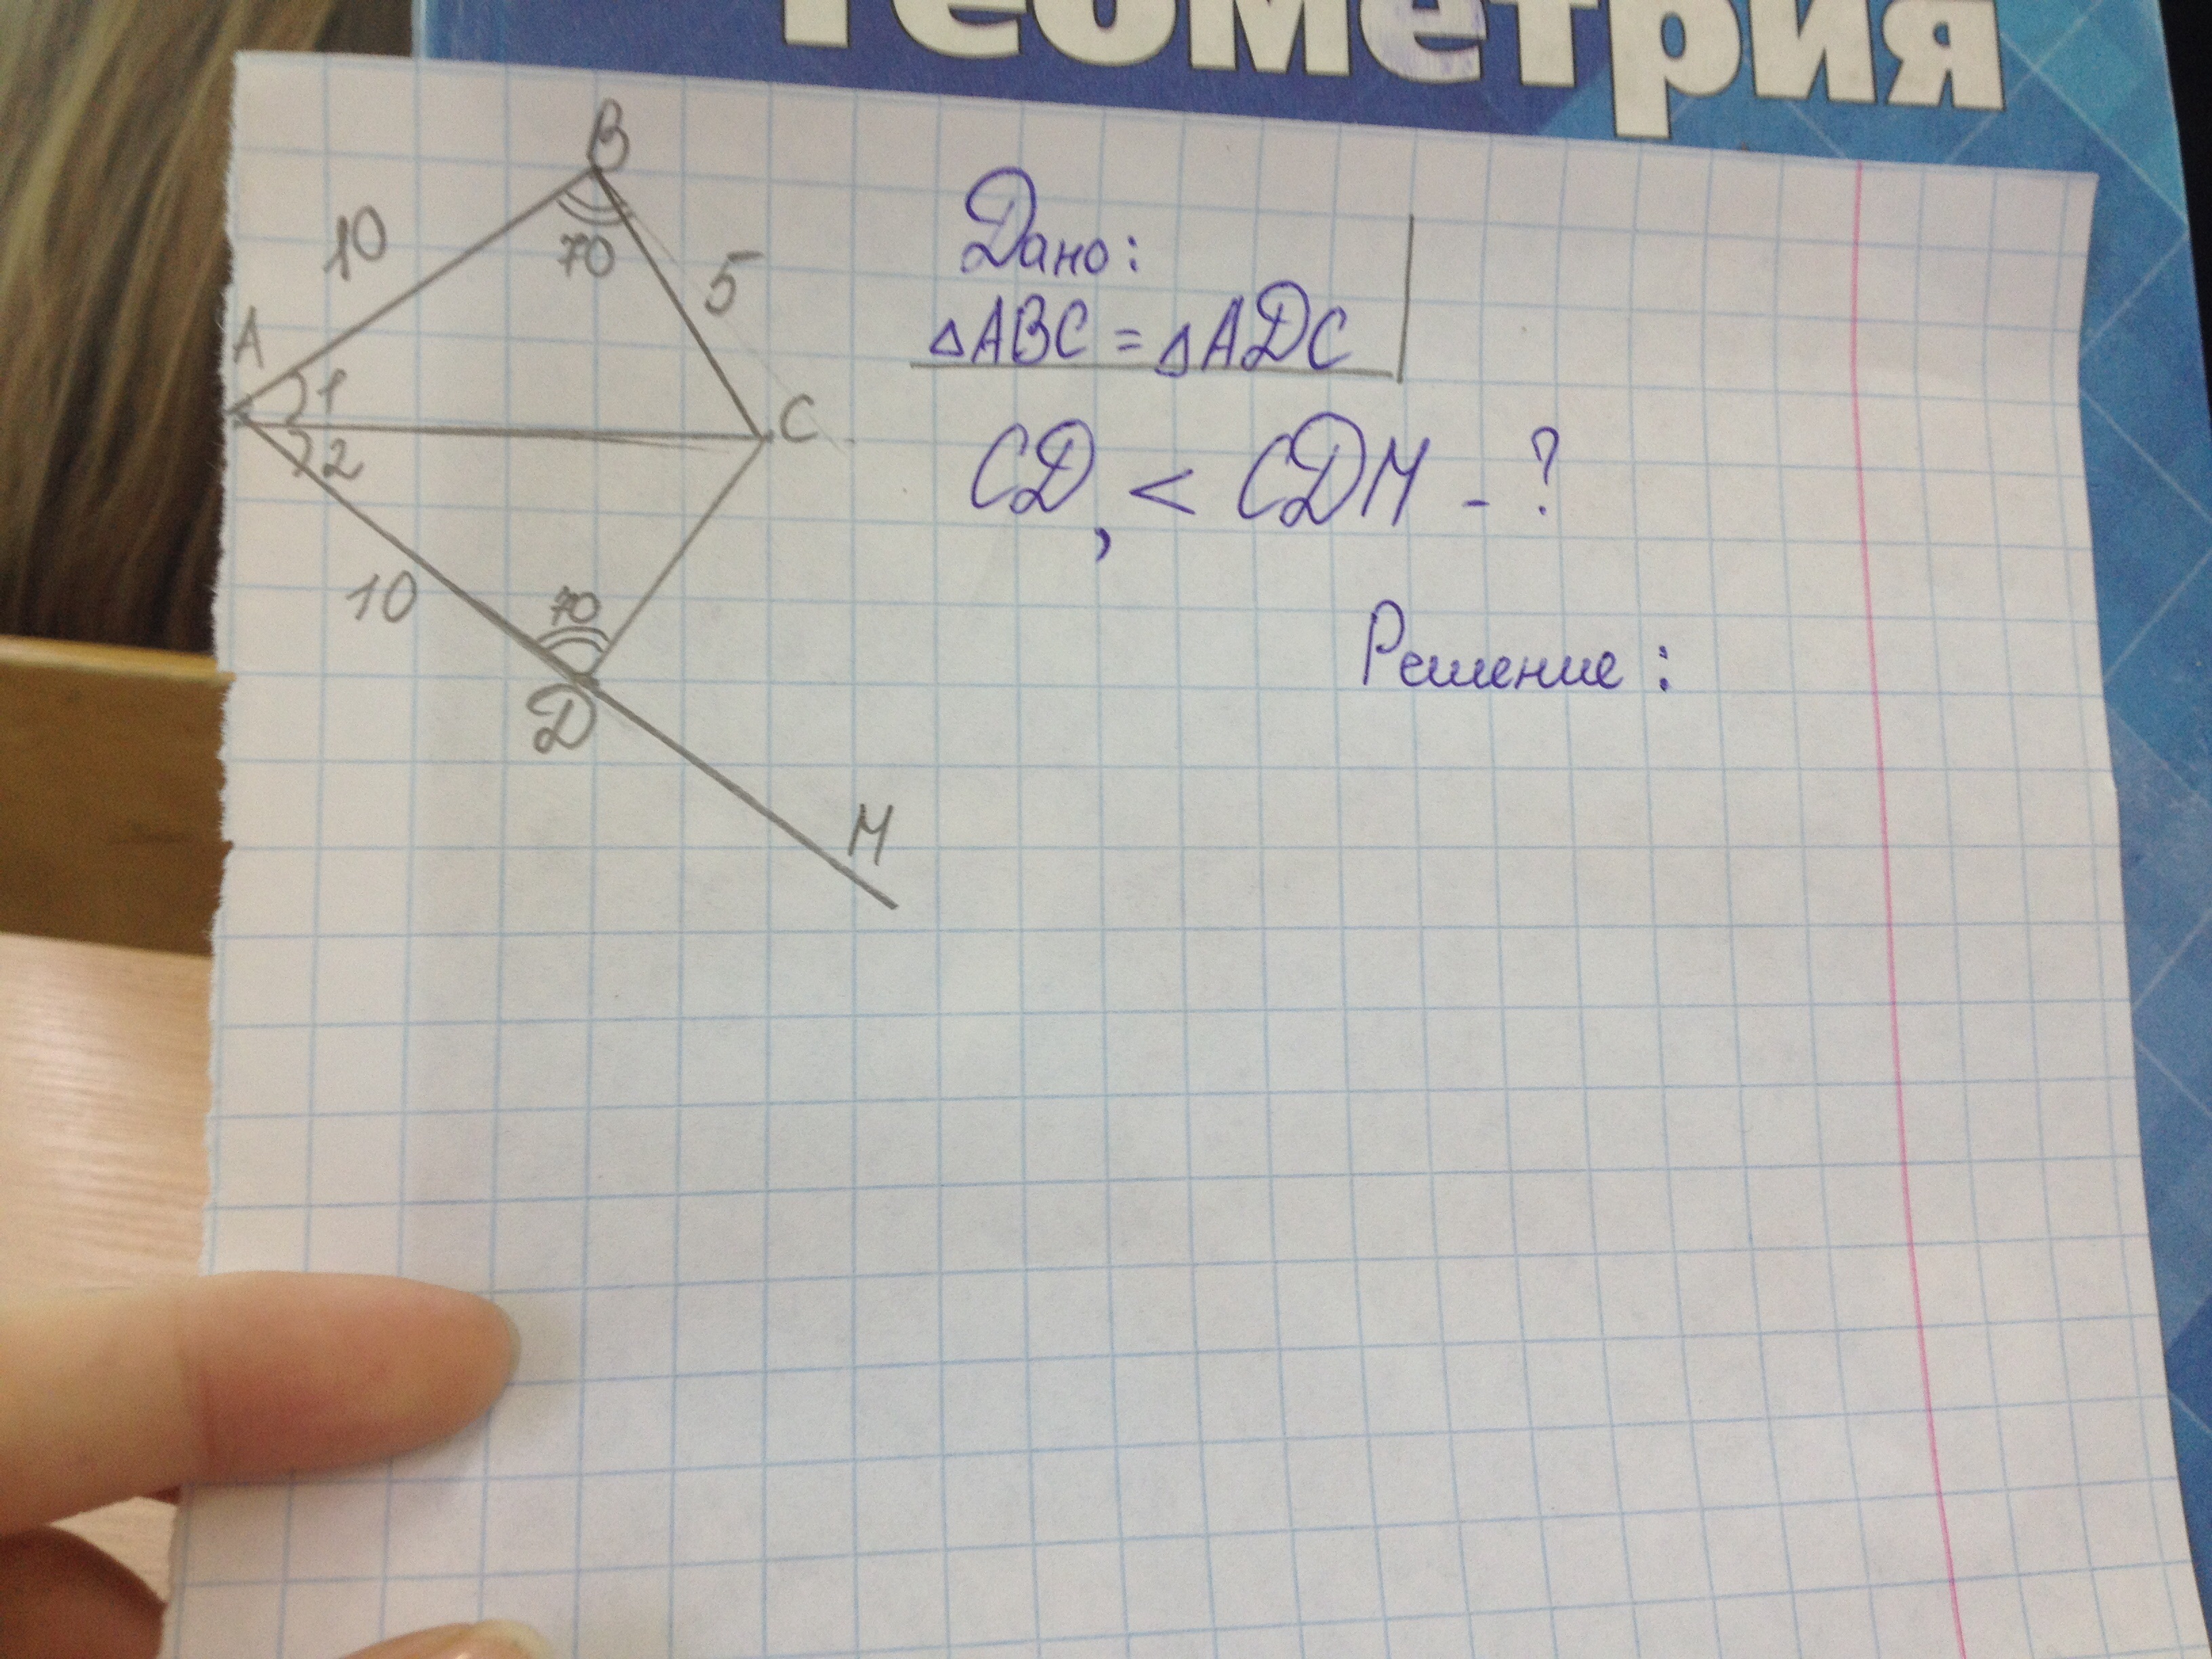 Геометрия
B
10
70
5
A
1
C
2
10
70
D
M
Дано:
△ABC = △ADC
CD, < CDM - ?
Решение: